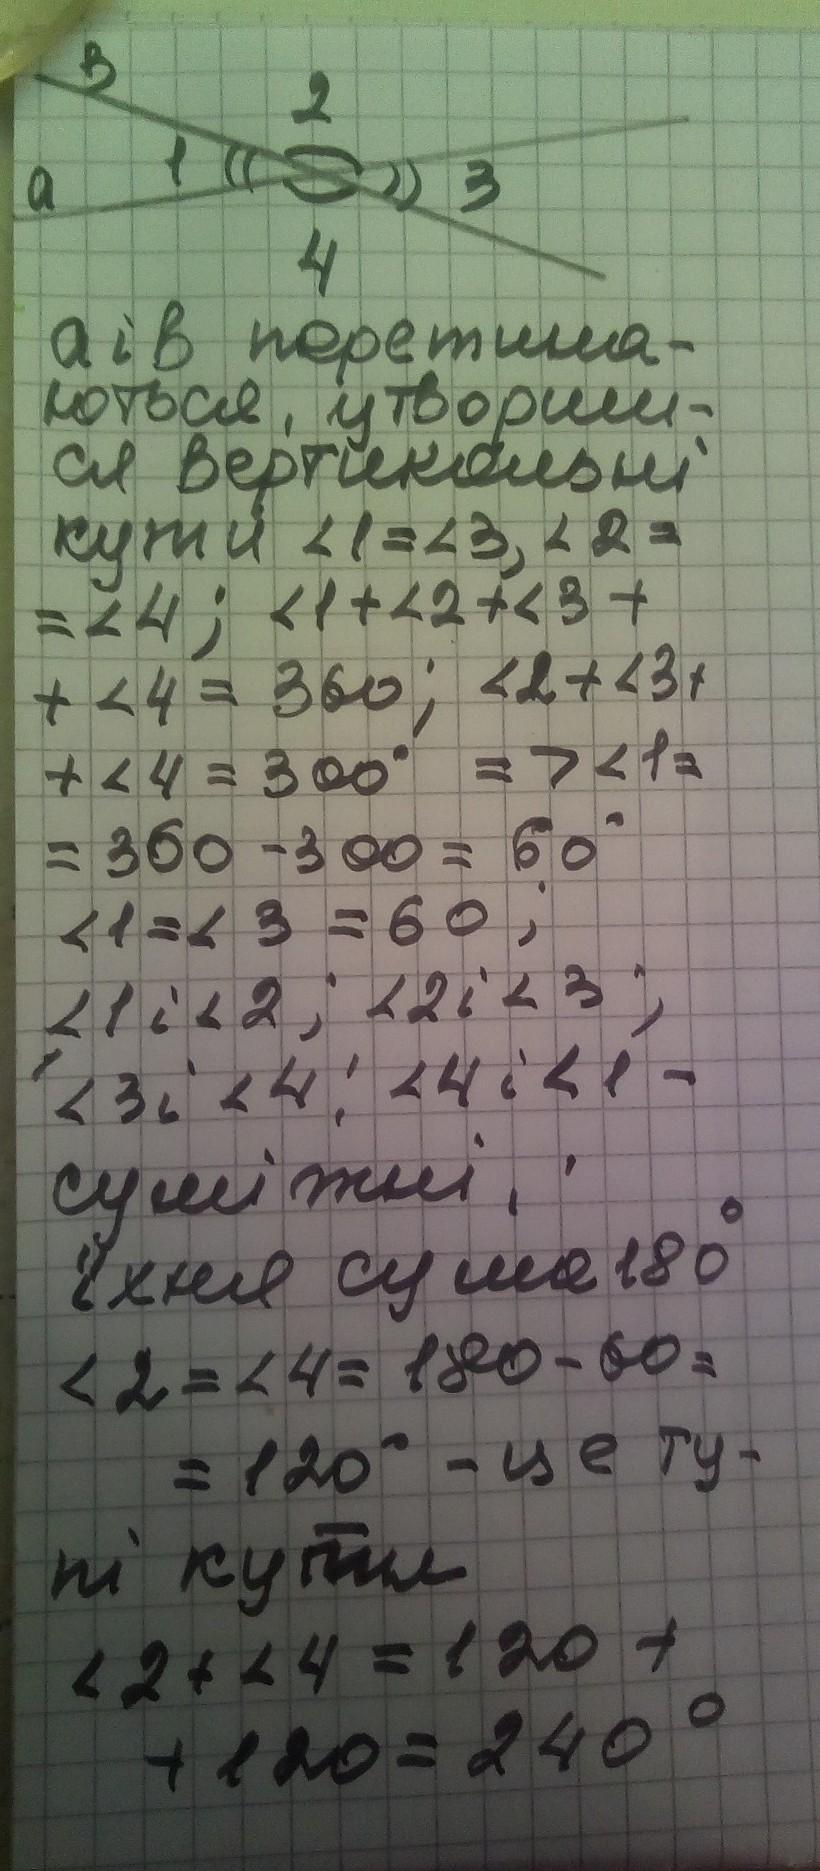 в
2
1
3
а
4
а і в перетина-
ються, утворили-
ся вертикальні
кути <1=<3, <2=
=<4; <1+<2+<3+
+<4=360; <2+<3+
+<4=300° => <1=
=360-300=60°
<1=<3=60;
<1 і <2; <2 і <3;
<3 і <4; <4 і <1 -
суміжні,
їхня сума 180°
<2=<4=180-60=
=120° - це ту-
пі кути
<2+<4=120+
+120=240°